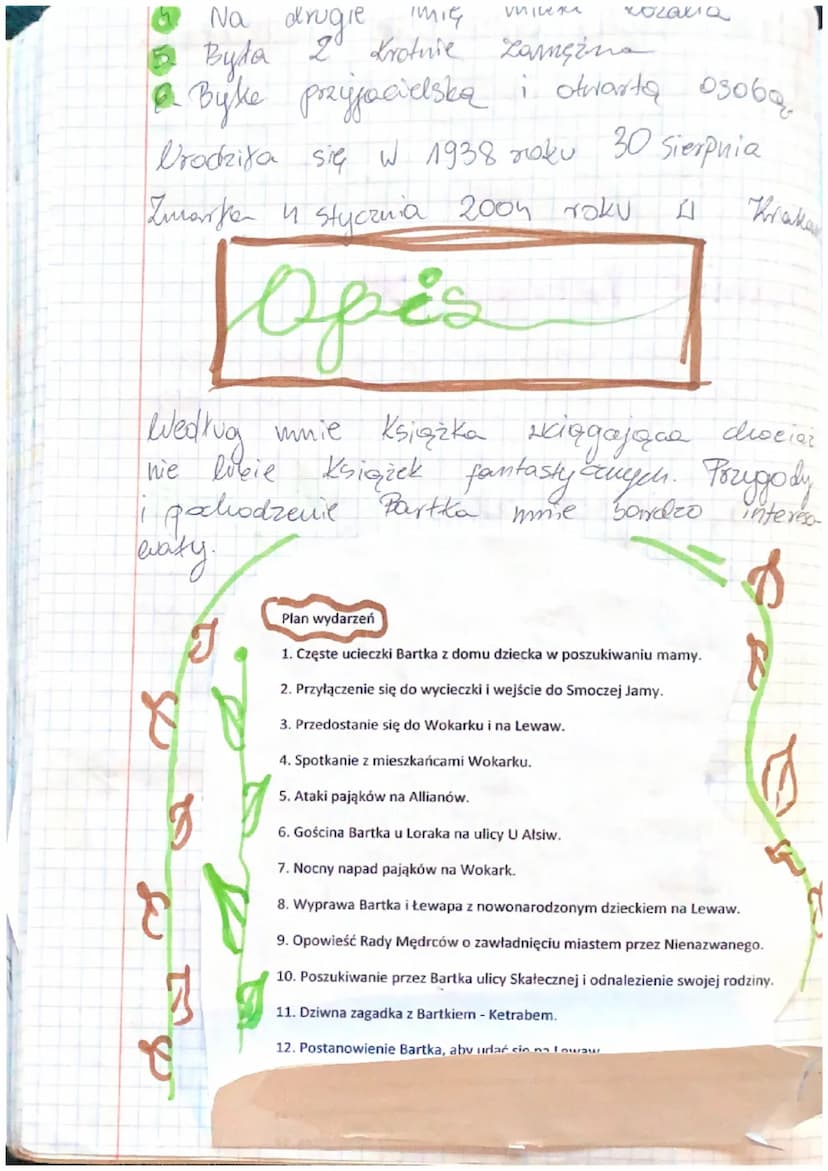 4. Na drugie imię miała Rozalia
5. Była 2 krotnie zamężna
6. Była przyjacielską i otwartą osobą.
Urodziła się w 1938 roku 30 Sierpnia
Zmarła 4 stycznia 2004 roku w Krakow
Opis
Według mnie Książka wciągająca chociaż
nie lubie Książek fantastycznych. Przygody
i pochodzenie Bartka mnie bardzo intereso
wały.
Plan wydarzeń
1. Częste ucieczki Bartka z domu dziecka w poszukiwaniu mamy.
2. Przyłączenie się do wycieczki i wejście do Smoczej Jamy.
3. Przedostanie się do Wokarku i na Lewaw.
4. Spotkanie z mieszkańcami Wokarku.
5. Ataki pająków na Allianów.
6. Gościna Bartka u Loraka na ulicy U Ałsiw.
7. Nocny napad pająków na Wokark.
8. Wyprawa Bartka i Łewapa z nowonarodzonym dzieckiem na Lewaw.
9. Opowieść Rady Mędrców o zawładnięciu miastem przez Nienazwanego.
10. Poszukiwanie przez Bartka ulicy Skałecznej i odnalezienie swojej rodziny.
11. Dziwna zagadka z Bartkiem - Ketrabem.
12. Postanowienie Bartka, aby udać się na Lewaw